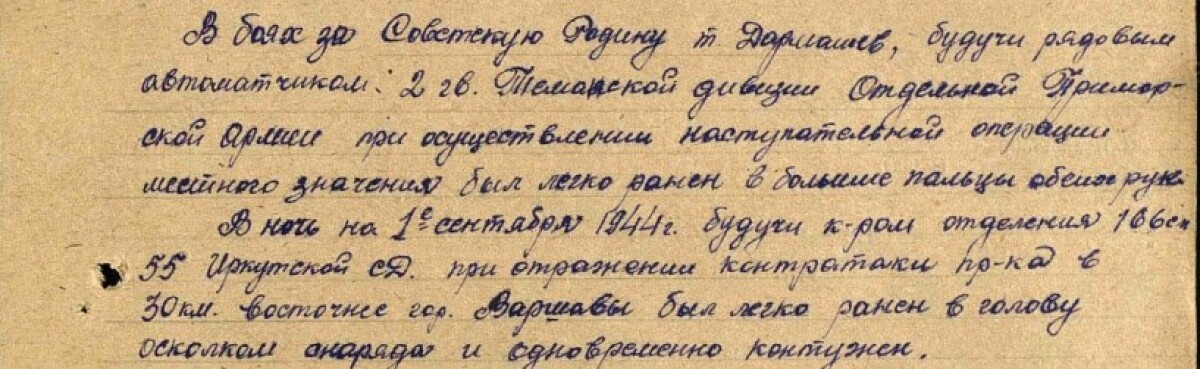 В боях за Советскую Родину т. Дармашев, будучи рядовым
автоматчиком 2 гв. Таманской дивизии Отдельной Примор-
ской Армии при осуществлении наступательной операции
местного значения был легко ранен в большие пальцы обеих рук.
В ночь на 1е сентября 1944 г. будучи к-ром отделения 166 сп
55 Иркутской сД. при отражении контратаки пр-ка в
30 км. восточнее гор. Варшавы был легко ранен в голову
осколком снаряда и одновременно контужен.